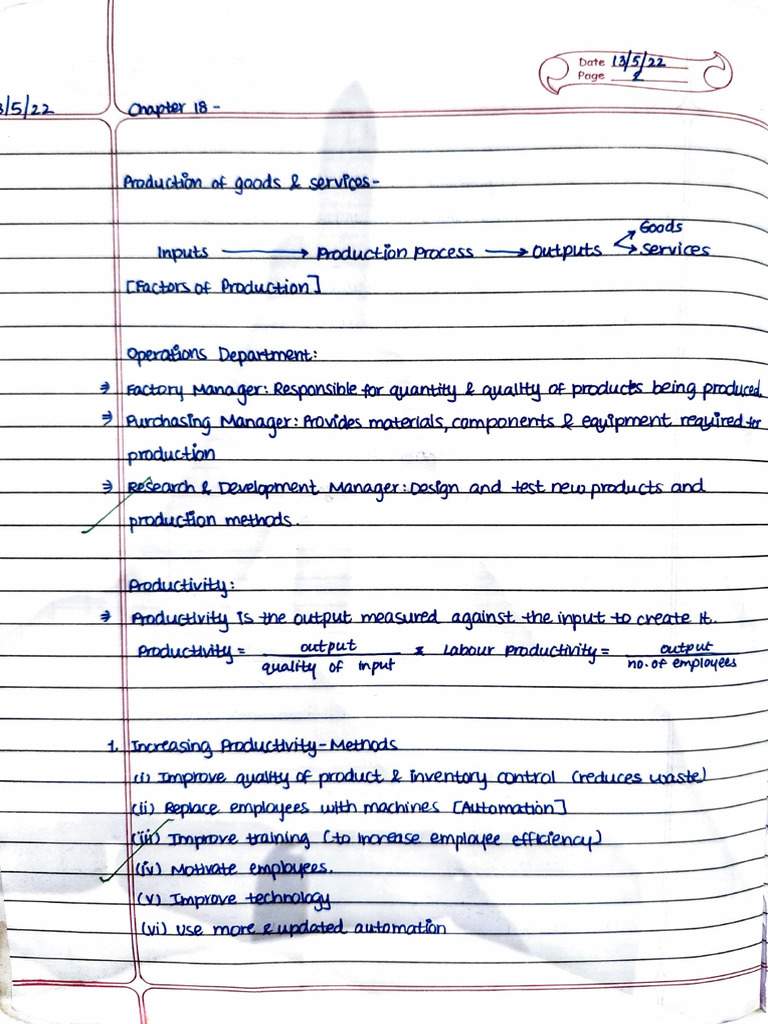 Date 13/5/22
Page
3/5/22 Chapter 18 -
Production of goods & services -
Goods
Inputs → Production Process → Outputs → Services
[Factors of Production]
Operations Department:
⇒ Factory Manager: Responsible for quantity & quality of products being produced.
⇒ Purchasing Manager: Provides materials, components & equipment required for
production
⇒ Research & Development Manager: Design and test new products and
production methods.
Productivity:
⇒ Productivity is the output measured against the input to create it.
Productivity = output / quality of input & Labour Productivity = output / no. of employees
1. Increasing Productivity - Methods
(i) Improve quality of product & inventory control (reduces waste)
(ii) Replace employees with machines [Automation]
(iii) Improve training (to increase employee efficiency)
(iv) Motivate employees.
(v) Improve technology
(vi) Use more & updated automation